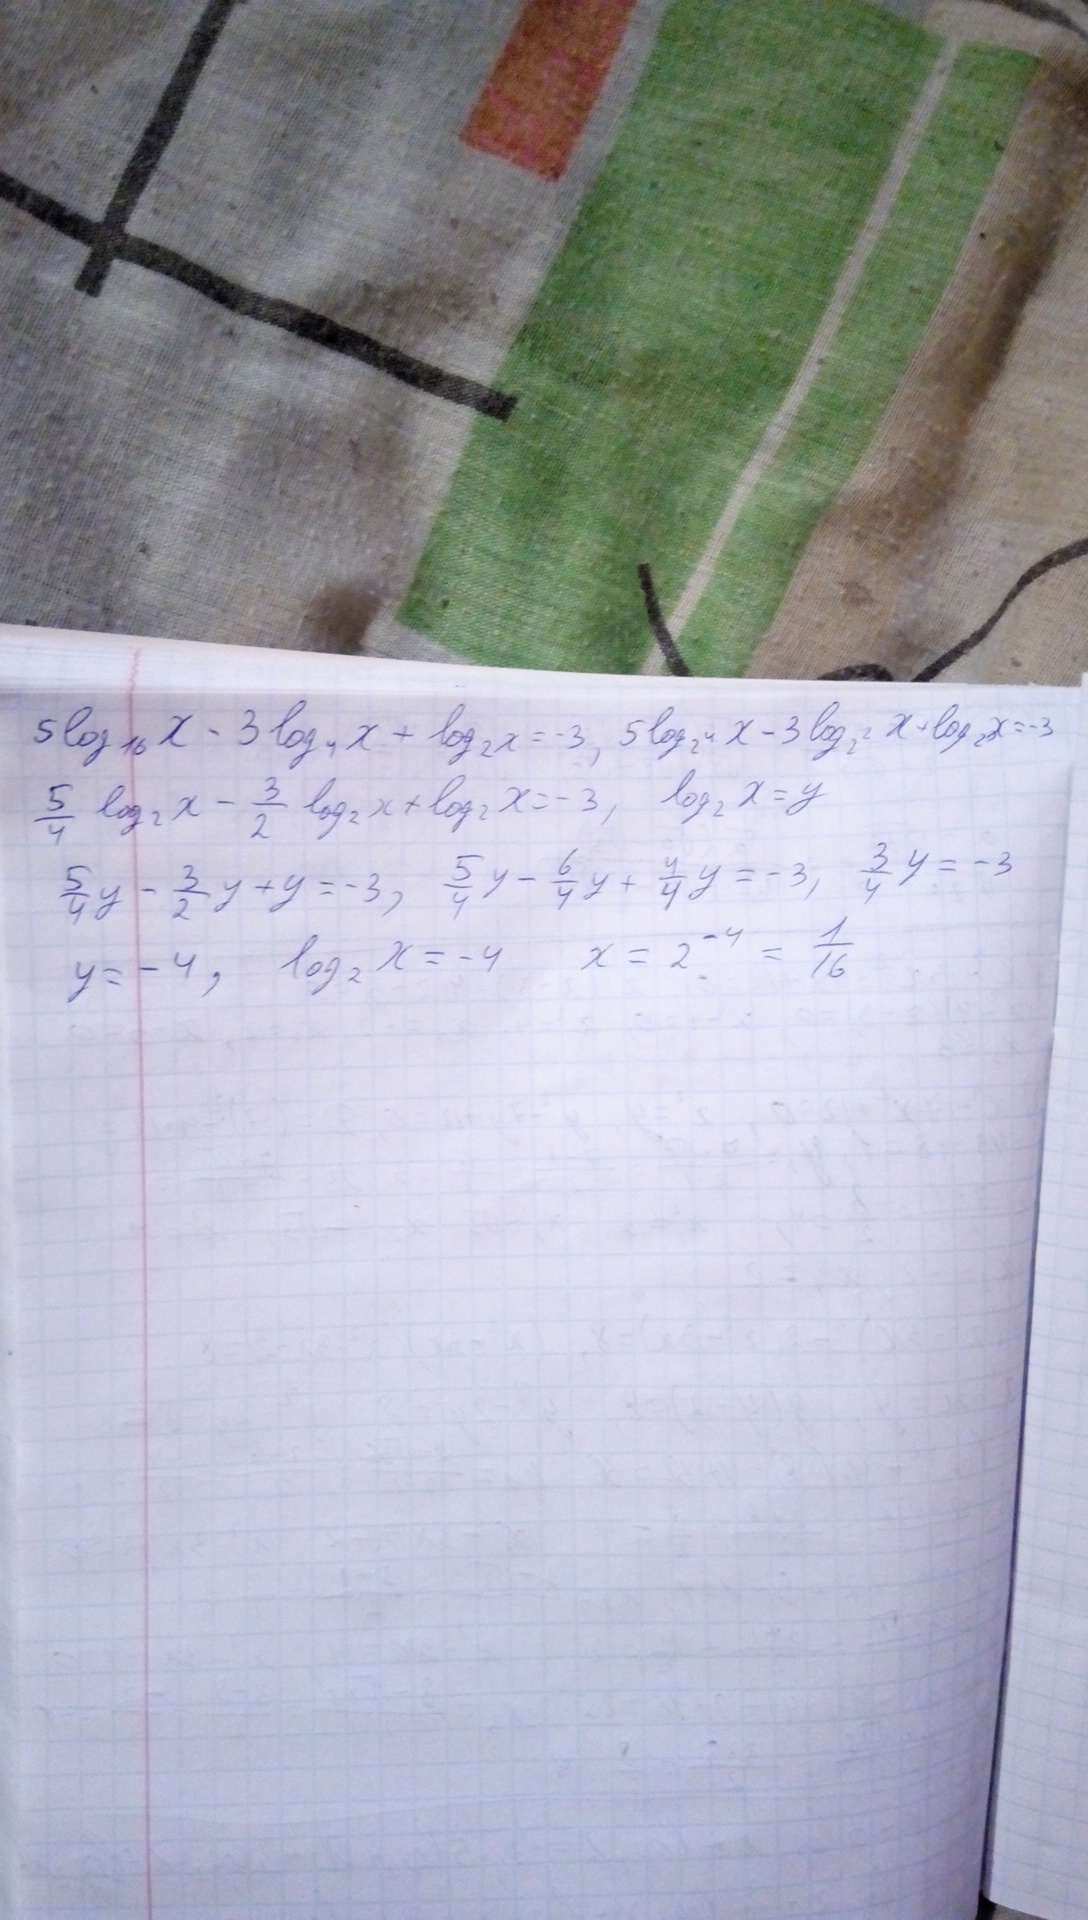 5log₁₆x - 3log₄x + log₂x = -3, 5log₂⁴x - 3log₂²x + log₂x = -3
5/4 log₂x - 3/2 log₂x + log₂x = -3, log₂x = y
5/4y - 3/2y + y = -3, 5/4y - 6/4y + 4/4y = -3, 3/4y = -3
y = -4, log₂x = -4 x = 2⁻⁴ = 1/16